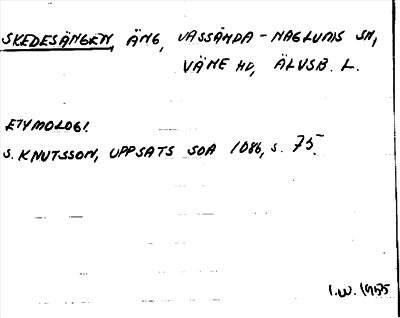 SKEDESÄNGEN, ÄNG, VASSÄNDA-NAGLUMS SN,
VÄNE HD, ÄLVSB. L.
ETYMOLOGI.
S. KNUTSSON, UPPSATS SOA 1086, S. 75.
I.W. 1975